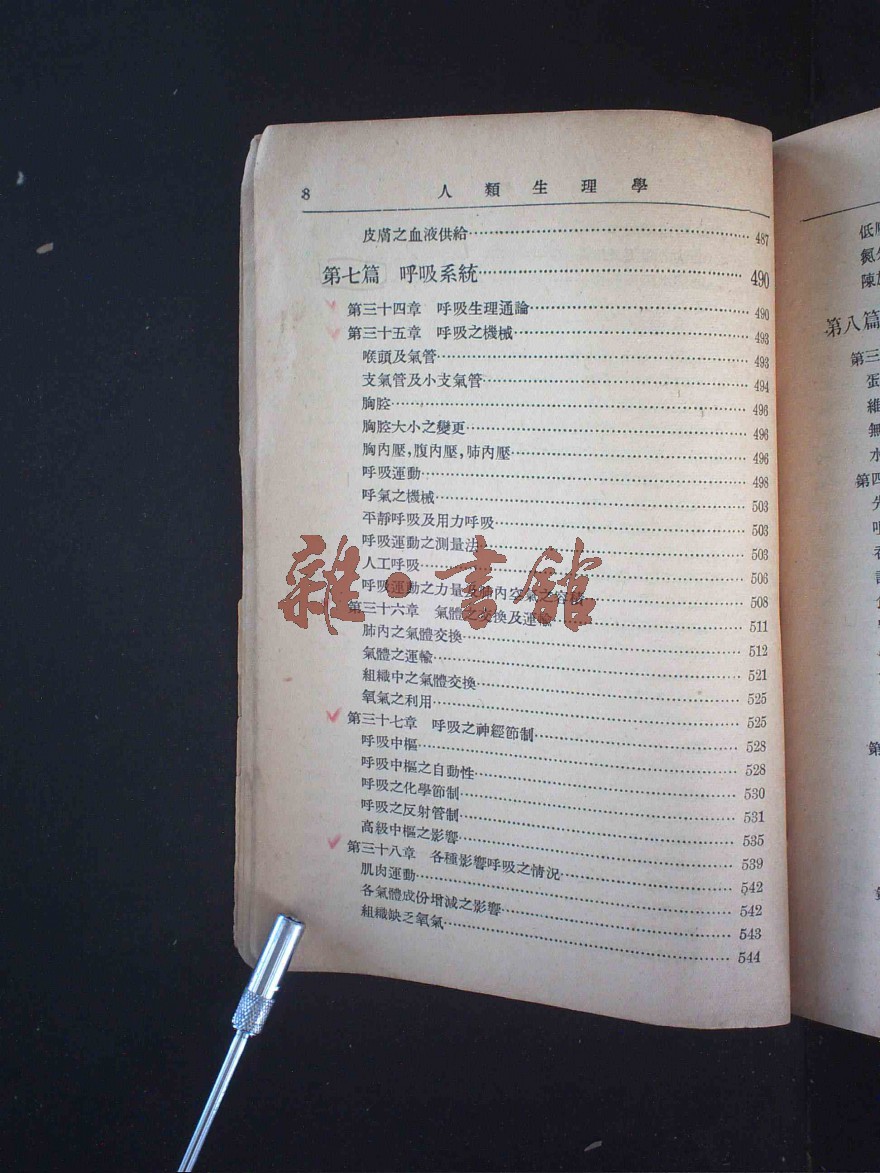 8 人類生理學
皮膚之血液供給 487
第七篇 呼吸系統 490
第三十四章 呼吸生理通論 490
第三十五章 呼吸之機械 493
喉頭及氣管 493
支氣管及小支氣管 494
胸腔 496
胸腔大小之變更 496
胸內壓,腹內壓,肺內壓 496
呼吸運動 498
呼氣之機械 503
平靜呼吸及用力呼吸 503
呼吸運動之測量法 503
人工呼吸 506
呼吸運動之力量及肺內空氣之容積 508
第三十六章 氣體之交換及運輸 511
肺內之氣體交換 512
氣體之運輸 521
組織中之氣體交換 525
氧氣之利用 525
第三十七章 呼吸之神經節制 528
呼吸中樞 528
呼吸中樞之自動性 530
呼吸之化學節制 531
呼吸之反射管制 535
高級中樞之影響 539
第三十八章 各種影響呼吸之情況 542
肌肉運動 542
各氣體成份增減之影響 543
組織缺乏氧氣 544
雜·書館
低
氮
陳
第八篇
第三
蛋
維
無
水
第四